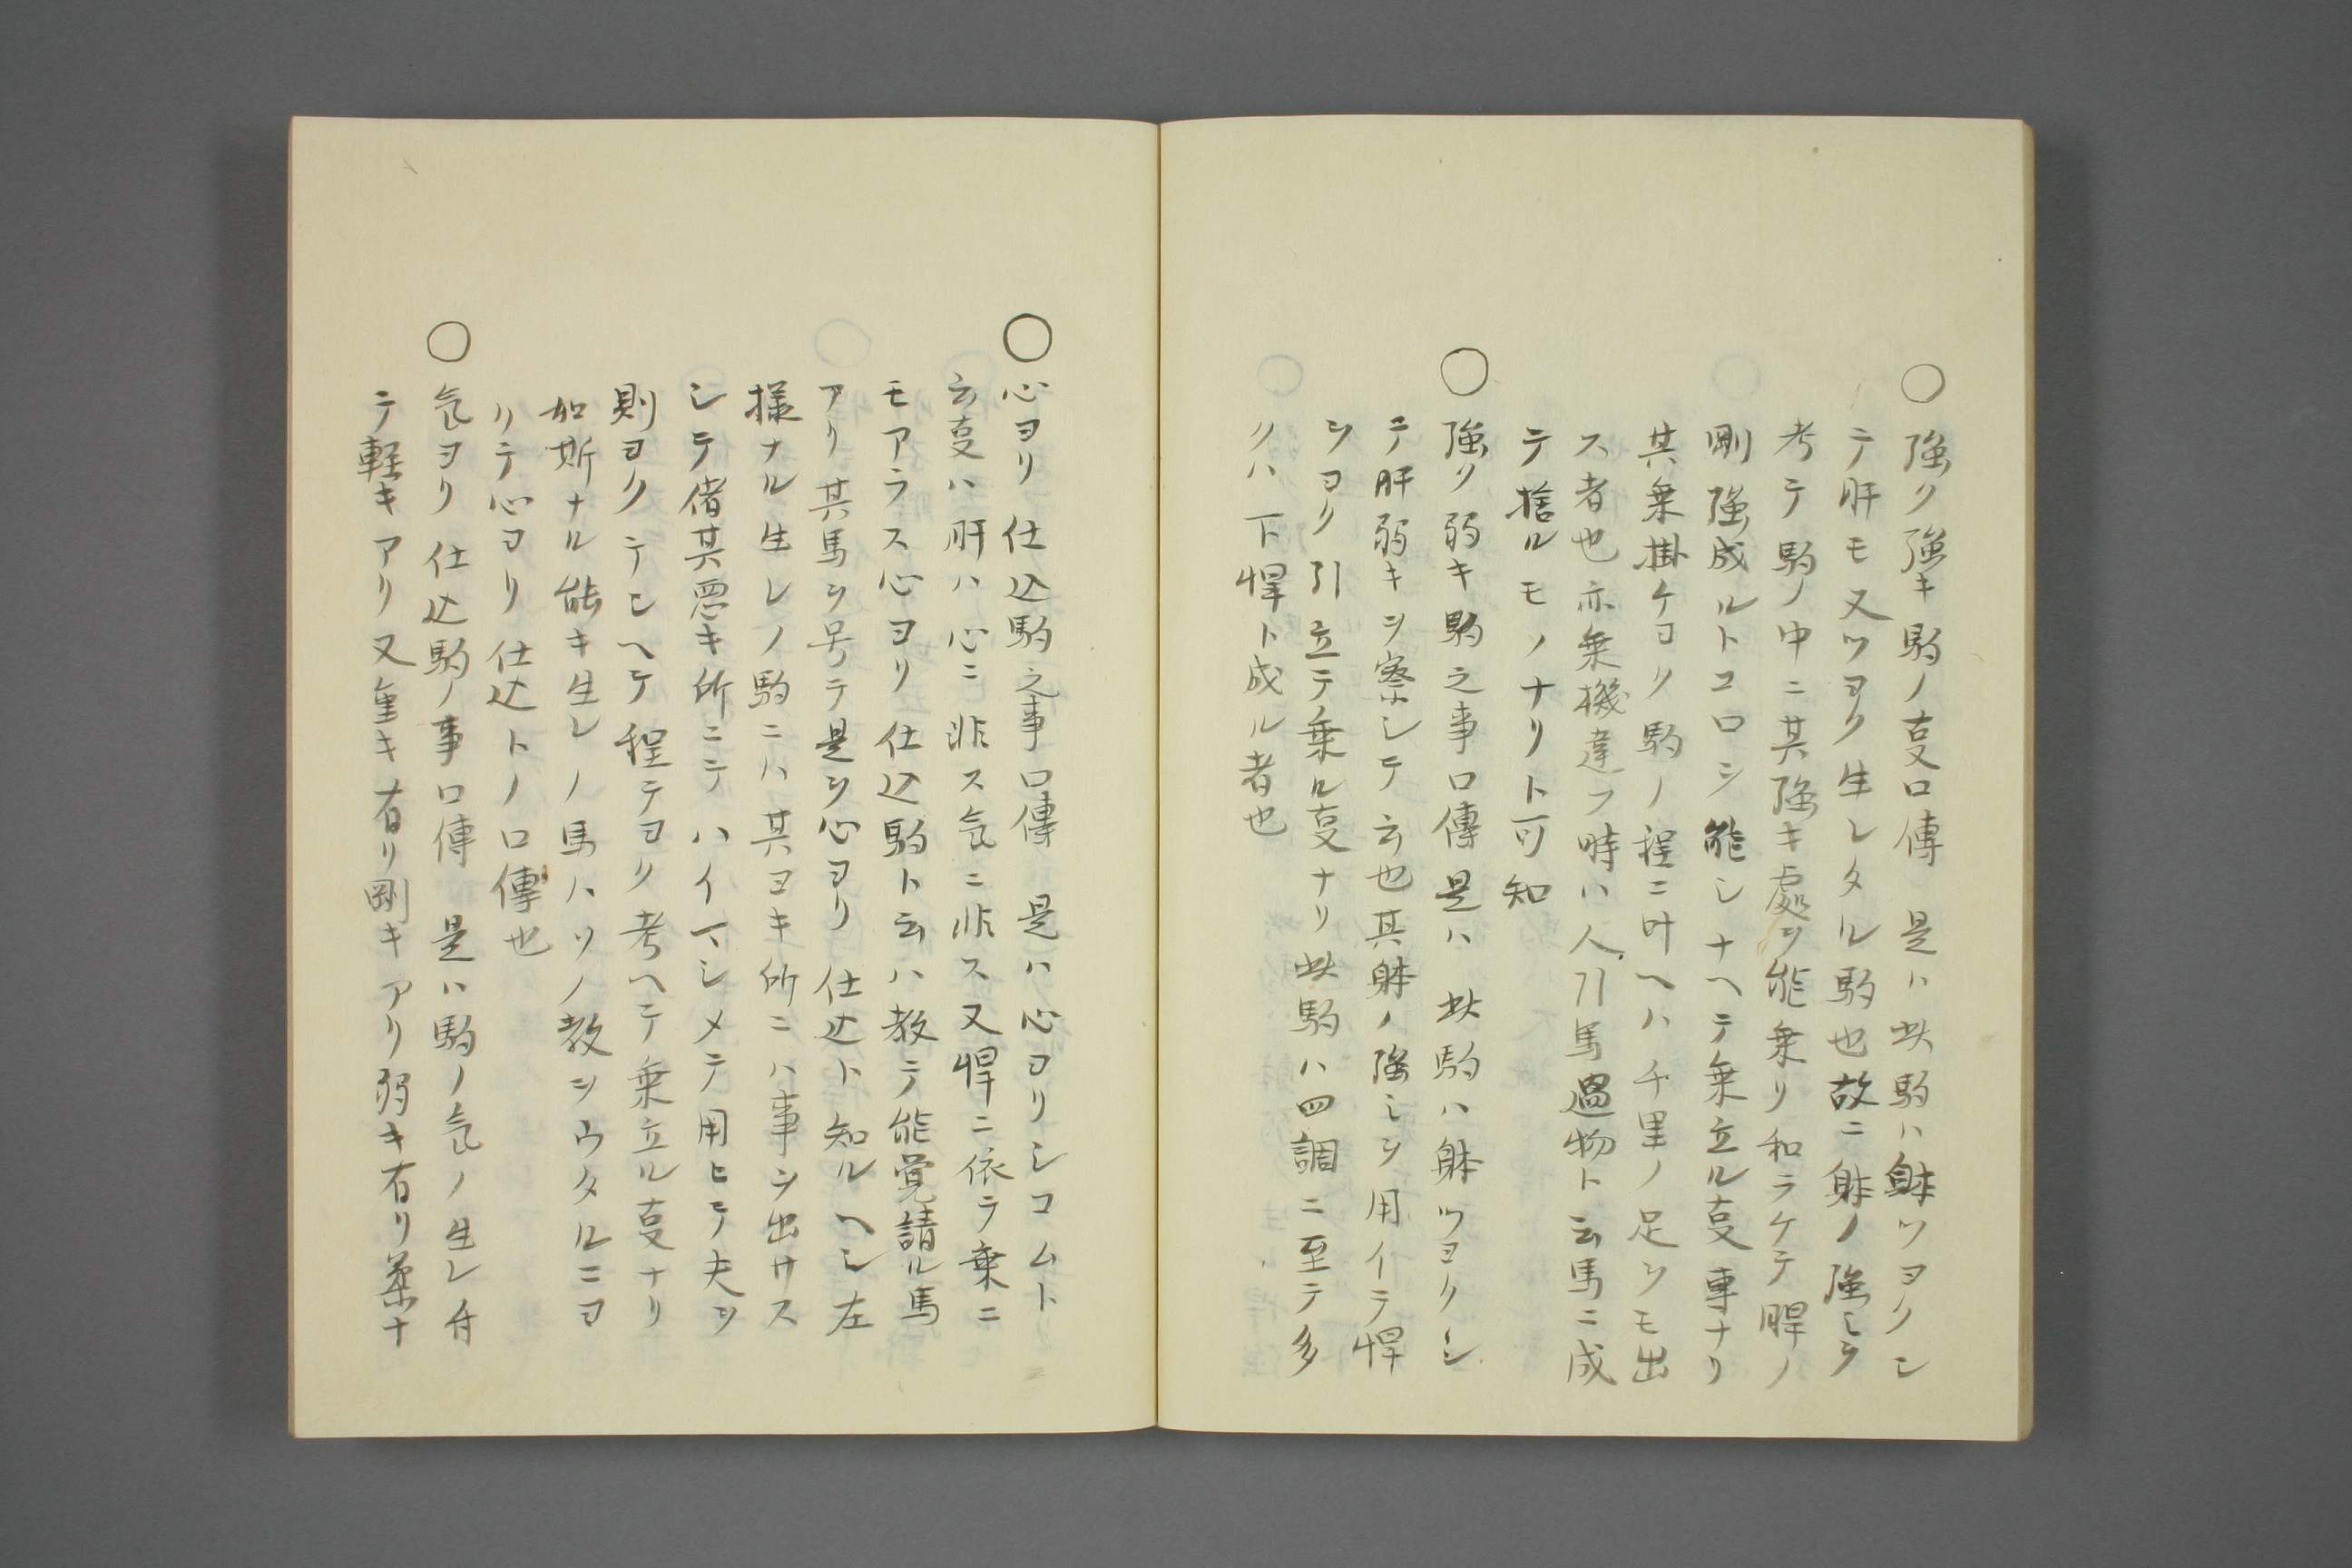 ○強ク強キ駒ノ叓口傳　是ハ此駒ハ躰ツヨクシ
テ肝モ又ツヨク生レタル駒也故ニ躰ノ強ミヲ
考テ駒ノ中ニ其強キ處ヲ能乗リ和ラケテ脾ノ
剛強成ルトコロヲ能シナヘテ乗立ル叓専ナリ
其乗掛ケヨク駒ノ程ニ叶ヘハ千里ノ足ヲモ出
ス者也亦乗機違フ時ハ人引馬過物ト云馬ニ成
テ捨ルモノナリト可知
○強ク弱キ駒之事口傳　是ハ此駒ハ躰ツヨクシ
テ肝弱キヲ察シテ云也其躰ノ強ミヲ用イテ悍
ヲヨク引立テ乗ル叓ナリ此駒ハ四調ニ至テ多
クハ下悍ト成ル者也
○心ヨリ仕込駒之事口傳　是ハ心ヨリシコムト
云叓ハ肝ハ心ニ非ス気ニ非ス又悍ニ依ラ乗ニ
モアラス心ヨリ仕込駒ト云ハ教テ能覚請ル馬
アリ其馬ヲ号テ是ヲ心ヨリ仕込ト知ルヘシ左
様ナル生レノ駒ニハ其ヨキ所ニハ事ヲ出サス
シテ偖其悪キ所ニテハイマシメテ用ヒテ夫ヲ
則ヨクテンヘテ程テヨク考ヘテ乗立ル叓ナリ
如斯ナル能キ生レノ馬ハソノ教ヲウタルニヨ
リテ心ヨリ仕込トノ口傳也
○気ヨリ仕込駒ノ事口傳　是ハ駒ノ気ノ生レ付
テ軽キアリ又重キ有リ剛キアリ弱キ有リ兼ナ